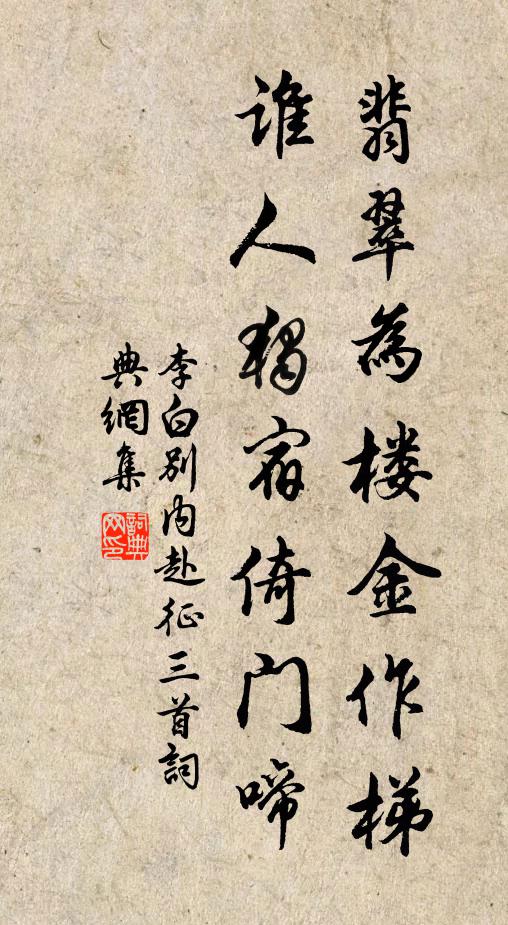 翡翠為楼金作梯
谁人独宿倚门啼
李白别内赴征三首詞
典網集
詞典網印